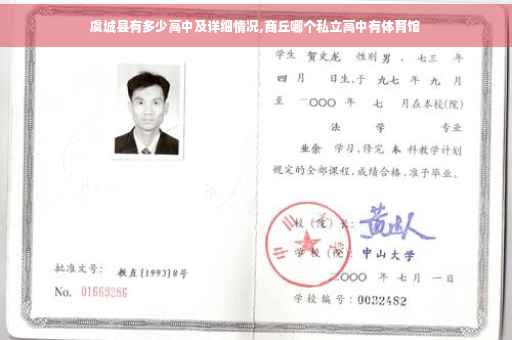 虞城县有多少高中及详细情况,商丘哪个私立高中有体育馆
学生 贺文龙 性别 男 、七三 年
四 月 日生,于 九七 年 九 月
至 二〇〇〇 年 七 月在本校(院)
法 学 专业
业余 学习,修完 本 科教学计划
规定的全部课程,成绩合格,准予毕业。
校(院)长:
学 校(院): 中山大学
二〇〇〇 年 七 月 一 日
学校编号: 0032482
批准文号: 教直[1993]8号
No. 01669286